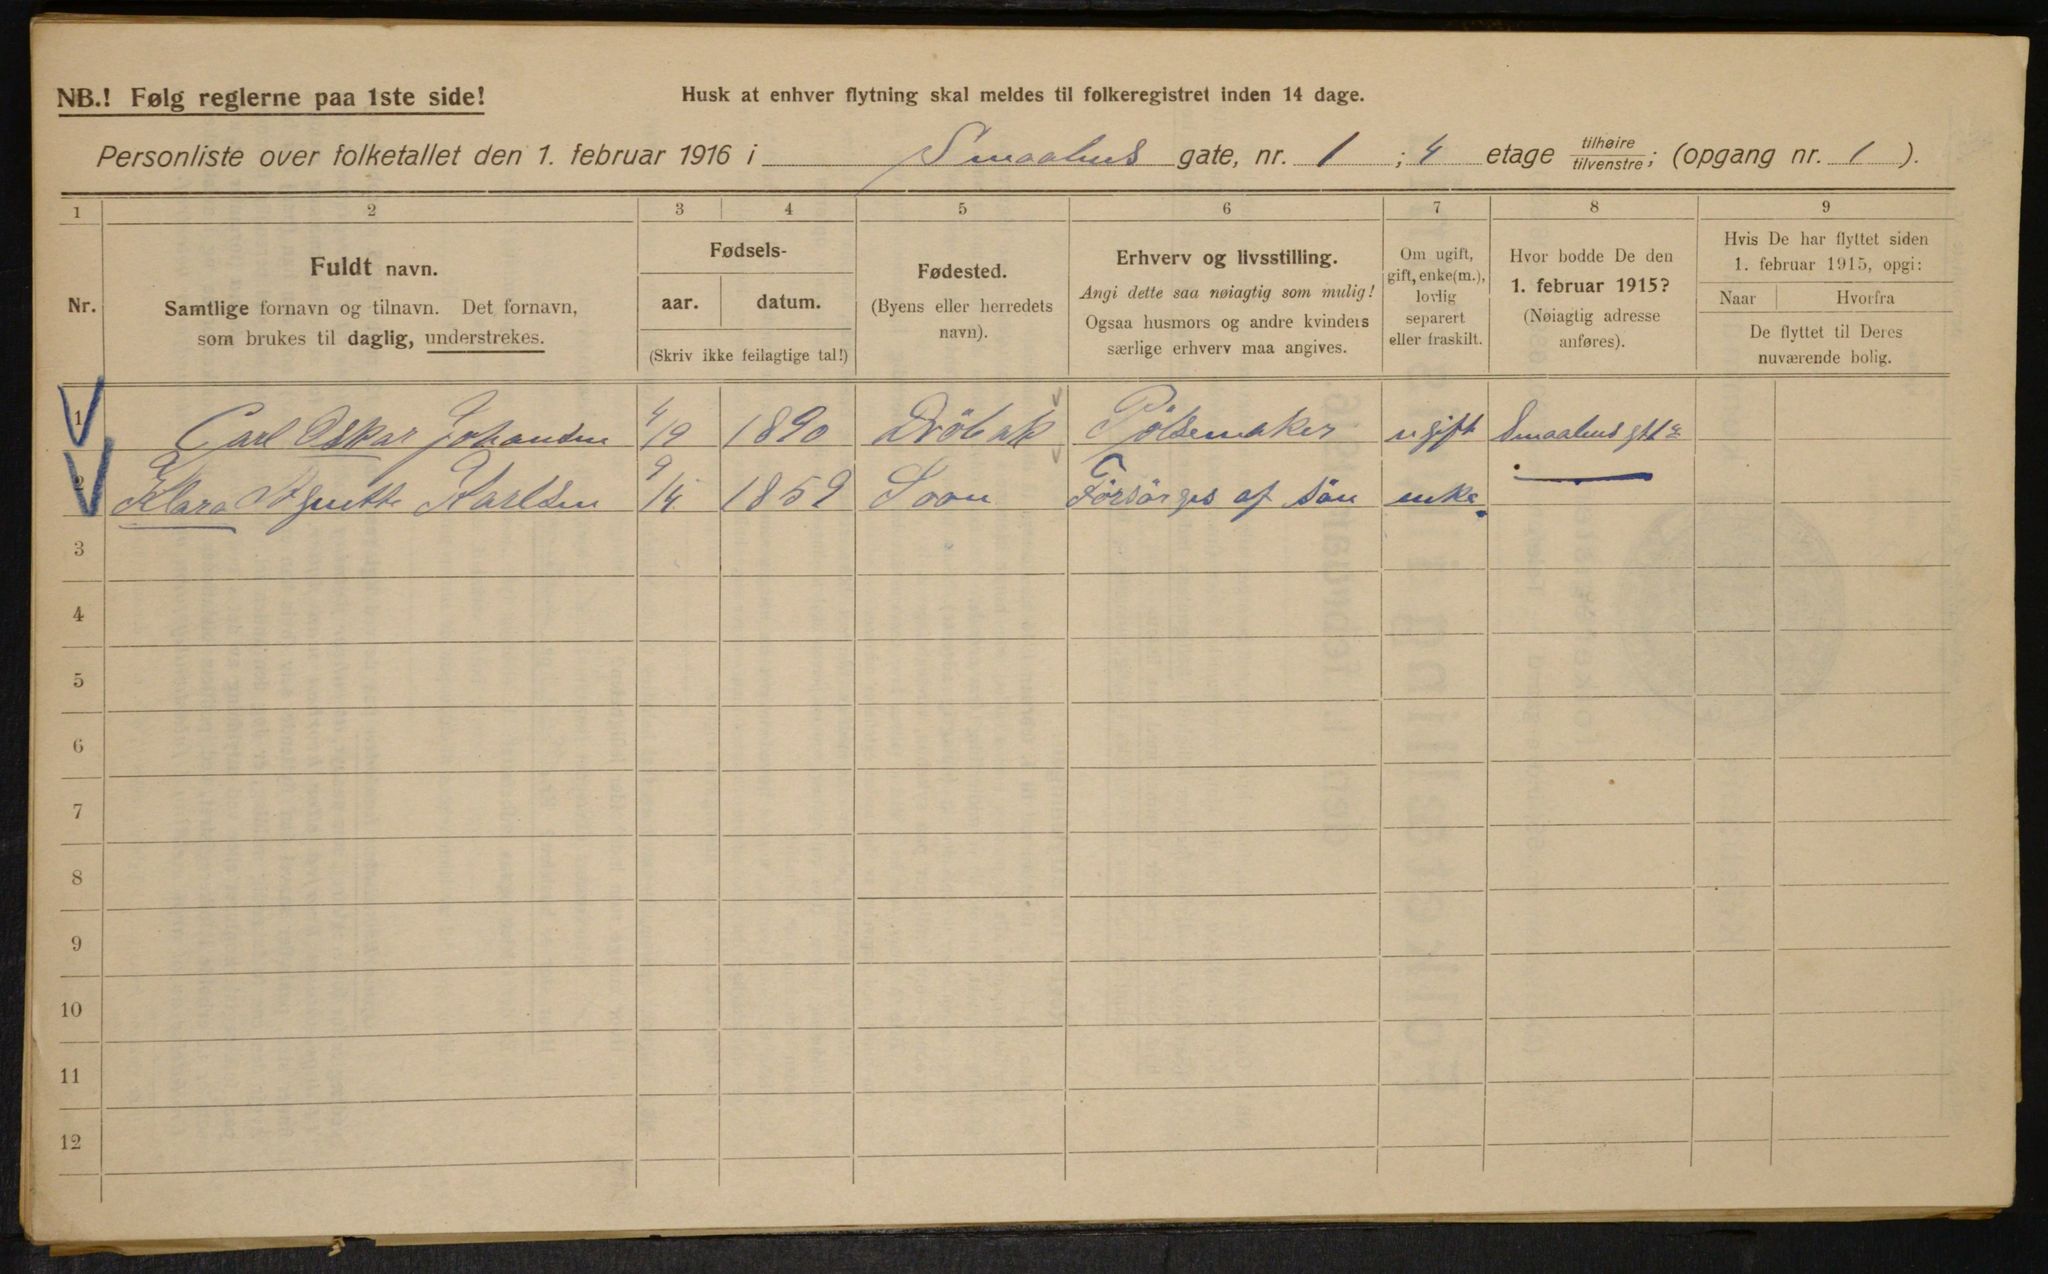 NB.! Følg reglerne paa 1ste side!
Husk at enhver flytning skal meldes til folkeregistret inden 14 dage.
Personliste over folketallet den 1. februar 1916 i Smaahus gate, nr. 1 ; 4 etage tilhøire/tilvenstre; (opgang nr. 1 ).
1 2 3 4 5 6 7 8 9
Nr.
Fuldt navn.
Samtlige fornavn og tilnavn. Det fornavn,
som brukes til daglig, understrekes.
Fødsels-
aar. datum.
(Skriv ikke feilagtige tal!)
Fødested.
(Byens eller herredets
navn).
Erhverv og livsstilling.
Angi dette saa nøiagtig som mulig!
Ogsaa husmors og andre kvinders
særlige erhverv maa angives.
Om ugift,
gift, enke(m.),
lovlig
separert
eller fraskilt.
Hvor bodde De den
1. februar 1915?
(Nøiagtig adresse
anføres).
Hvis De har flyttet siden
1. februar 1915, opgi:
Naar Hvorfra
De flyttet til Deres
nuværende bolig.
1 Carl Oskar Johansen 4/9 1890 Dröbak Pölsemaker ugift Smaahusgt
2 Klara Agnette Karlsen 9/4 1859 Soon Försörges af sön enke
3
4
5
6
7
8
9
10
11
12